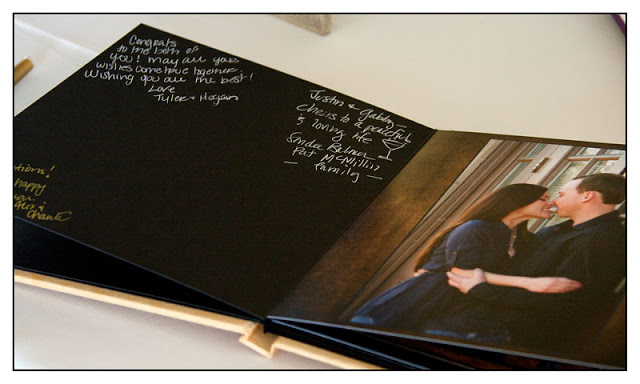 Congrats
to the both of
you! May all your
wishes come true together.
Wishing you all the best!
Love
Tyler + Megan
Justin & Gabby —
cheers to a peaceful
& loving life
Pat McMillin
— family —
tions!
happy
&